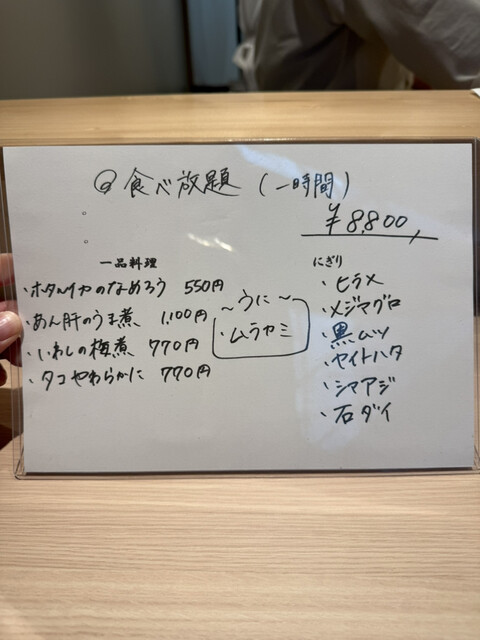 食べ放題(一時間)
¥8,800
一品料理
・ホタルイカのなめろう 550円
・あん肝のうま煮 1,100円
・いわしの梅煮 770円
・タコやわらかに 770円
〜うに〜
・ムラサキ
にぎり
・ヒラメ
・メジマグロ
・黒ムツ
・ヤイトハタ
・シマアジ
・石ダイ